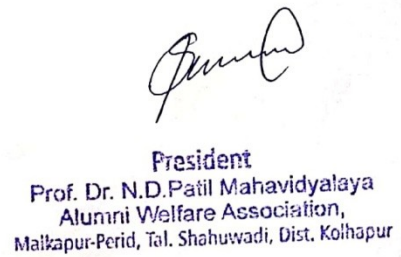 President
Prof. Dr. N.D.Patil Mahavidyalaya
Alumni Welfare Association,
Malkapur-Perid, Tal. Shahuwadi, Dist. Kolhapur